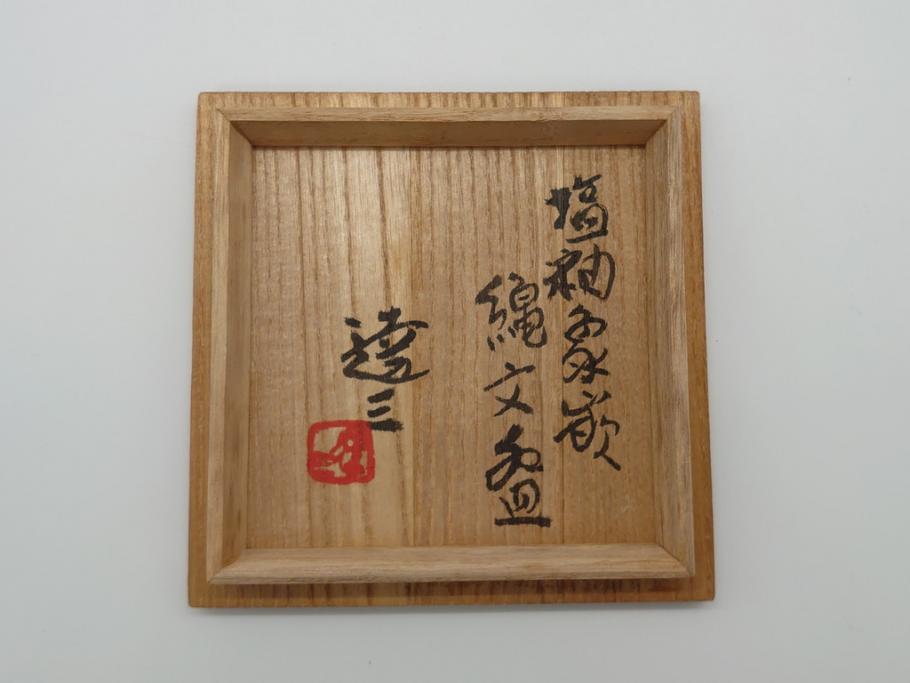 塩釉象嵌
縄文盌
達三